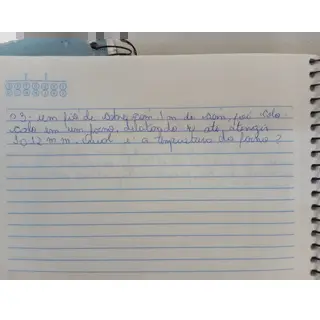 03- um fio de cobre com 1m de com, foi colo-
cado em um forno, dilatando se até atengir
1012 mm. qual é a temperatura do forno?